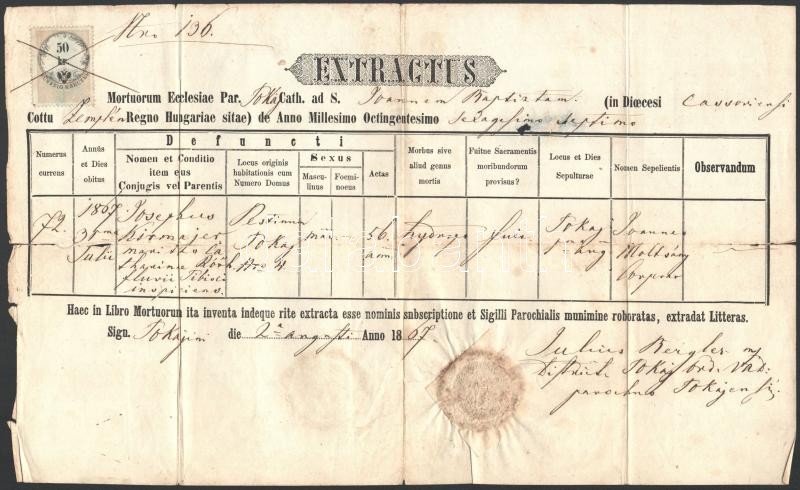 Nro 136.
50
kr
EXTRACTUS
Mortuorum Ecclesiae Par. Tokaj Cath. ad S. Joannem Baptistam. (in Dioecesi Cassoviensi
Cottu Zemplén Regno Hungariae sitae) de Anno Millesimo Octingentesimo Sexagesimo Septimo
Numerus currens
Annus et Dies obitus
Defuncti
Nomen et Conditio item eus Conjugis vel Parentis
Locus originis habitationis cum Numero Domus
Sexus
Mascu-linus
Foemi-noeus
Aetas
Morbus sive aliud genus mortis
Fuitne Sacramentis moribundorum provisus?
Locus et Dies Sepulturae
Nomen Sepelientis
Observandum
72.
1867
Julii
Josephus
Kirmajer
fluvii Tibisci
inspiciens.
Tokaj
Nro 4
mas.
56.
ann.
hydrops
Tokaj
aug
Joannes
Haec in Libro Mortuorum ita inventa indeque rite extracta esse nominis subscriptione et Sigilli Parochialis munimine roboratas, extradat Litteras.
Sign. Tokajini die 2a Augusti Anno 1867.
Julius Bergler
Districtus Tokaj
parochus Tokajensis